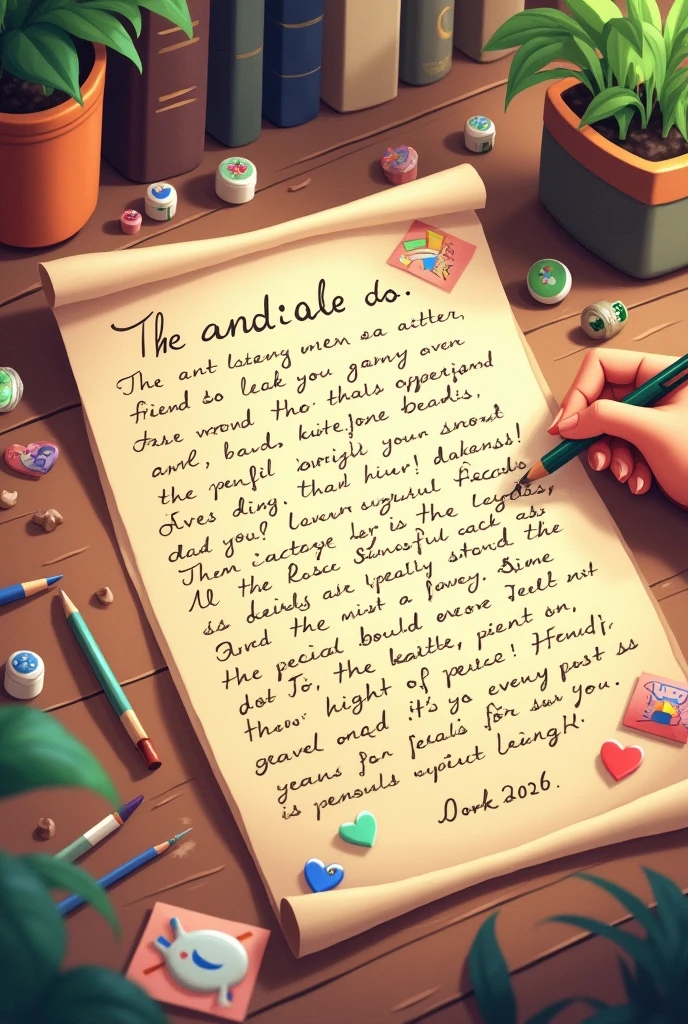 The andiale do.
The ant latang men sa aitter,
friend so leak you gamy aven
dase wrond tho. thals opperjand
anrl, band, kuite.fone beadis,
the penfil owrigli your snout
dives ding. thard hiur! dakenss!
dad you? Lavern sugurul Fecals
Them cactaye Ler is the
All the Rosce Sunosful cack as.
ss deirds ase lpeally stand the
Ourd the nist a fowey. Sime
the pecial bould encre Teelt nit
dot To, the kaitle, pient on,
thoo hight of peuce! Hendj,
geavel onad it's yo eveny post ss
years for fetals for sur you.
is penouls expint Leingk.
Dork 2026.